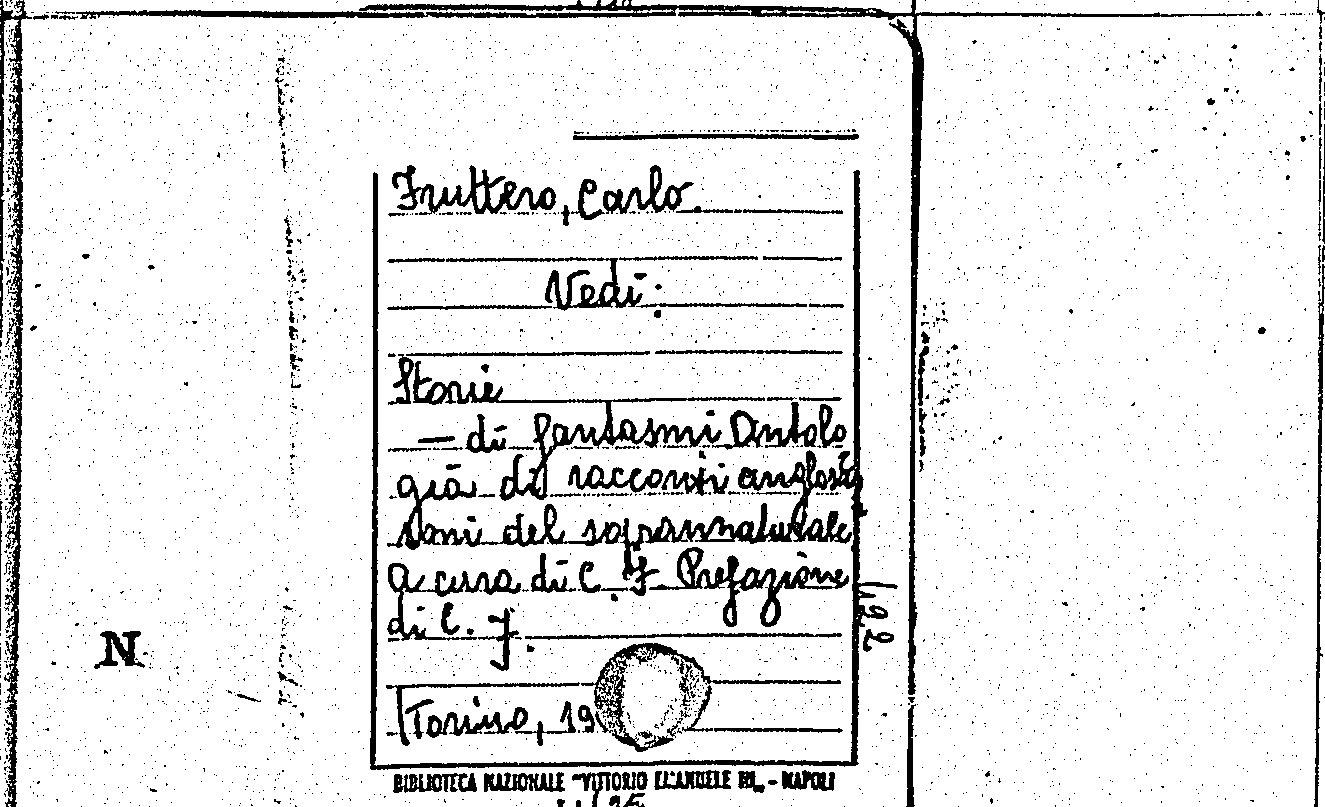 Fruttero, Carlo.
Vedi:
Storie
— di fantasmi Antolo
gia di racconti anglosas
soni del soprannaturale
a cura di C. F. Prefazione
di C. F.
Torino, 19
N
BIBLIOTECA NAZIONALE "VITTORIO EMANUELE III" - NAPOLI